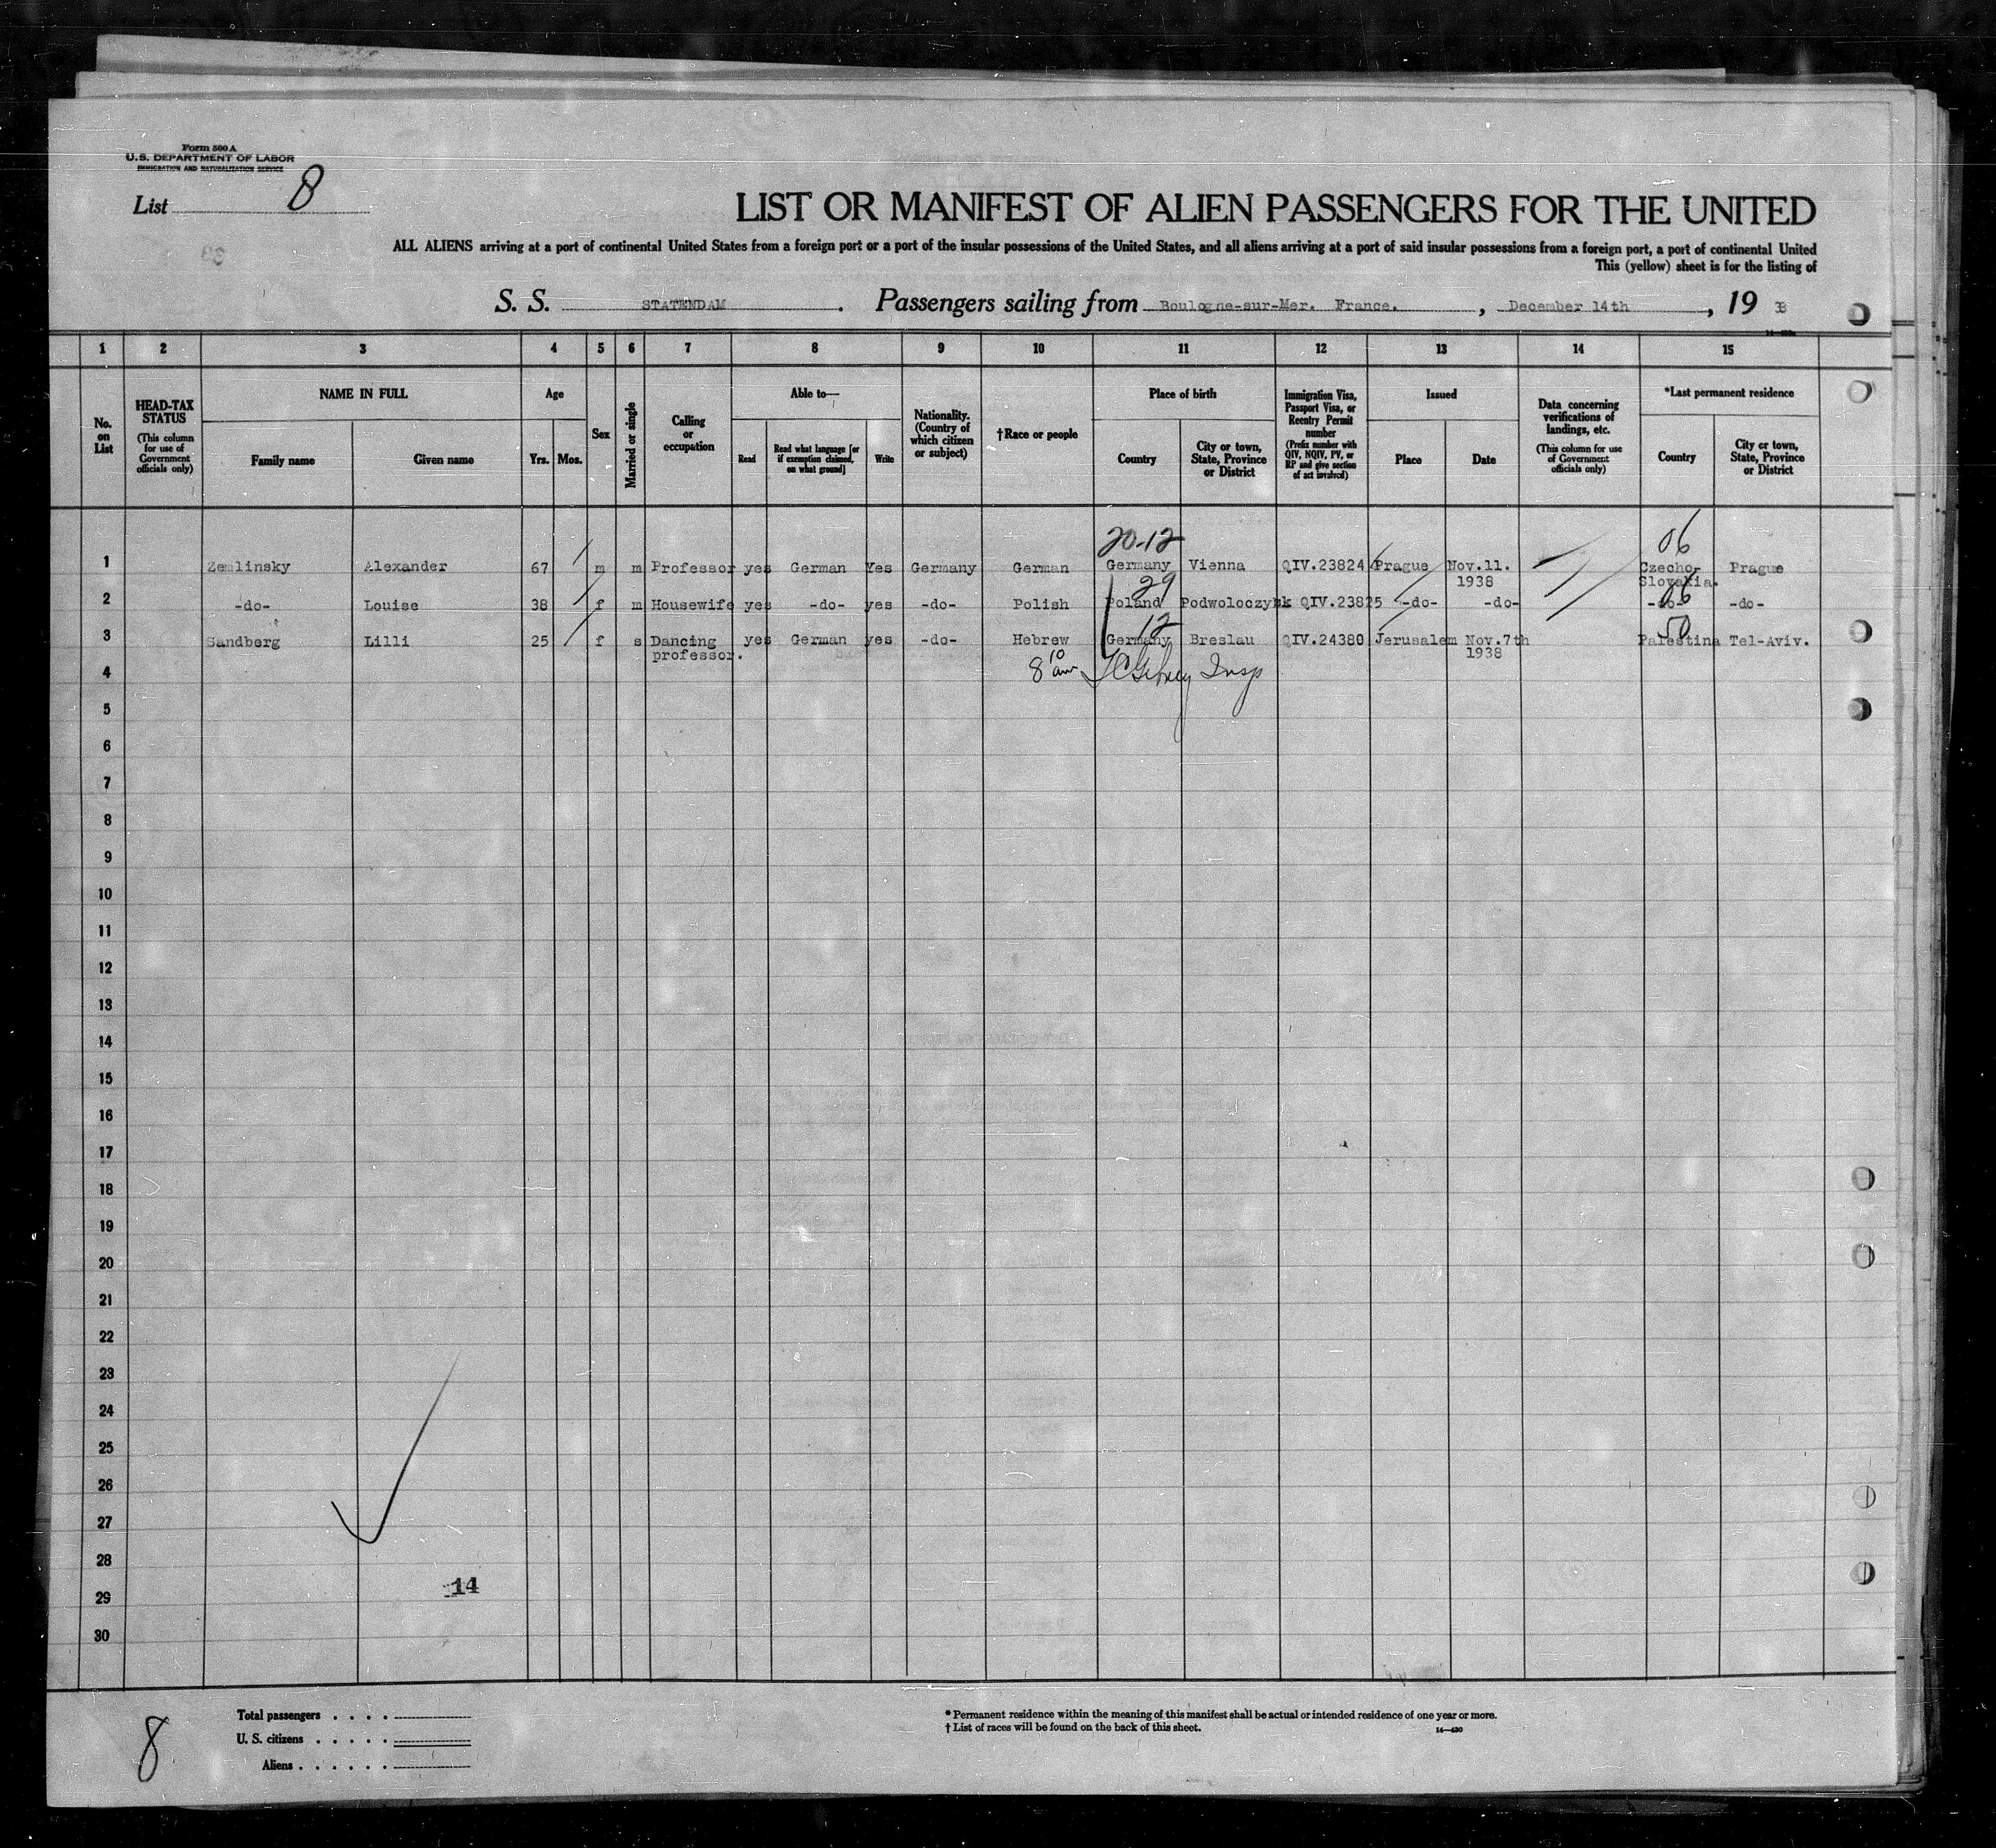 Form 500 A
U.S. DEPARTMENT OF LABOR
IMMIGRATION AND NATURALIZATION SERVICE
List 8
LIST OR MANIFEST OF ALIEN PASSENGERS FOR THE UNITED
ALL ALIENS arriving at a port of continental United States from a foreign port or a port of the insular possessions of the United States, and all aliens arriving at a port of said insular possessions from a foreign port, a port of continental United
This (yellow) sheet is for the listing of
S. S. STATENDAM. Passengers sailing from Boulogne-sur-Mer. France., December 14th, 19
1 2 3 4 5 6 7 8 9 10 11 12 13 14 15
No. on List
HEAD-TAX STATUS (This column for use of Government officials only)
NAME IN FULL
Family name Given name
Age
Yrs. Mos.
Sex
Married or single
Calling or occupation
Able to—
Read Read what language [or if exemption claimed, on what ground] Write
Nationality. (Country of which citizen or subject)
†Race or people
Place of birth
Country City or town, State, Province or District
Immigration Visa, Passport Visa, or Reentry Permit number (Prefix number with QIV, NQIV, PV, or RP and give section of act involved)
Issued
Place Date
Data concerning verifications of landings, etc. (This column for use of Government officials only)
*Last permanent residence
Country City or town, State, Province or District
20-12 06
1 Zemlinsky Alexander 67 m m Professor yes German Yes Germany German Germany Vienna QIV.23824 Prague Nov.11. 1938 Czecho-Slovakia. Prague
29 06
2 -do- Louise 38 f m Housewife yes -do- yes -do- Polish Poland Podwoloczysk QIV.23825 -do- -do- -do- -do-
12 50
3 Sandberg Lilli 25 f s Dancing professor. yes German yes -do- Hebrew Germany Breslau QIV.24380 Jerusalem Nov.7th 1938 Palestina Tel-Aviv.
4 8 10 am Insp
5
6
7
8
9
10
11
12
13
14
15
16
17
18
19
20
21
22
23
24
25
26
27
28
29 14
30
8
Total passengers . . . .
U. S. citizens . . . . .
Aliens . . . . . .
* Permanent residence within the meaning of this manifest shall be actual or intended residence of one year or more.
† List of races will be found on the back of this sheet. 14—430